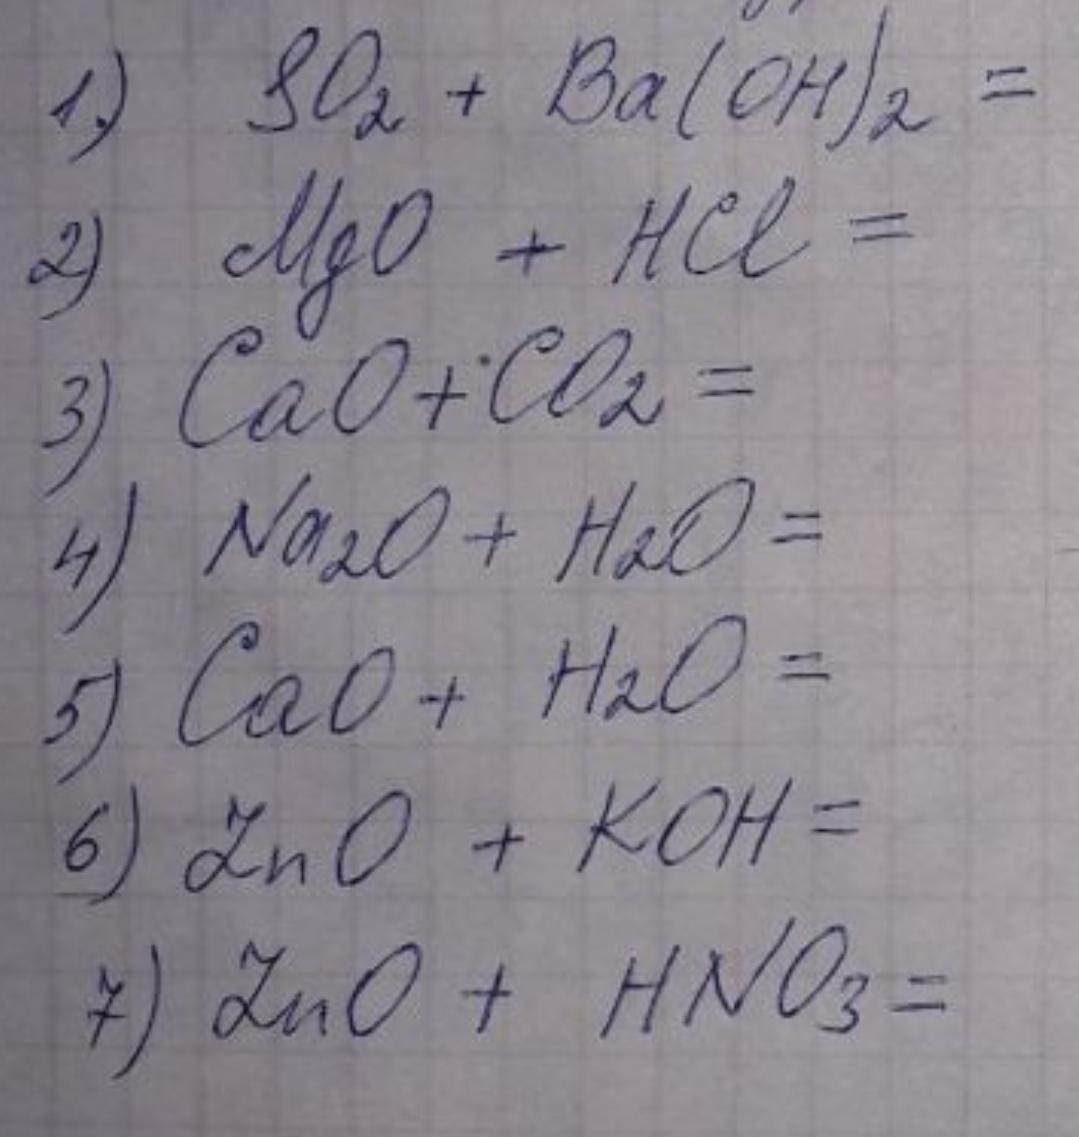 1.) SO2 + Ba(OH)2 =
2) MgO + HCl =
3) CaO + CO2 =
4) Na2O + H2O =
5) CaO + H2O =
6) ZnO + KOH =
7) ZnO + HNO3 =